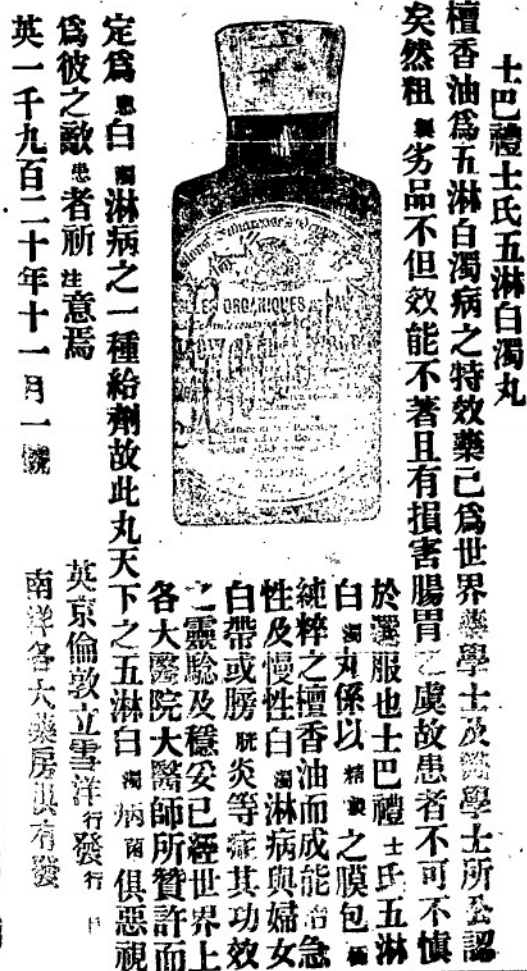 士巴禮士氏五淋白濁丸
檀香油爲五淋白濁病之特效藥己爲世界藥學士及醫學士所公認
矣然粗製劣品不但效能不著且有損害腸胃之虞故患者不可不慎
於選服也士巴禮士氏五淋
白濁丸係以精製之膜包極
純粹之檀香油而成能治急
性及慢性白濁淋病與婦女
白帶或膀胱炎等症其功效
之靈驗及穩妥已經世界上
各大醫院大醫師所贊許而
定爲患白濁淋病之一種給劑故此丸天下之五淋白濁病菌俱惡視
爲彼之敵患者祈注意焉
英一千九百二十年十一月一號
英京倫敦立雪洋行發行
南洋各大藥房俱有發
ORGANIQUES